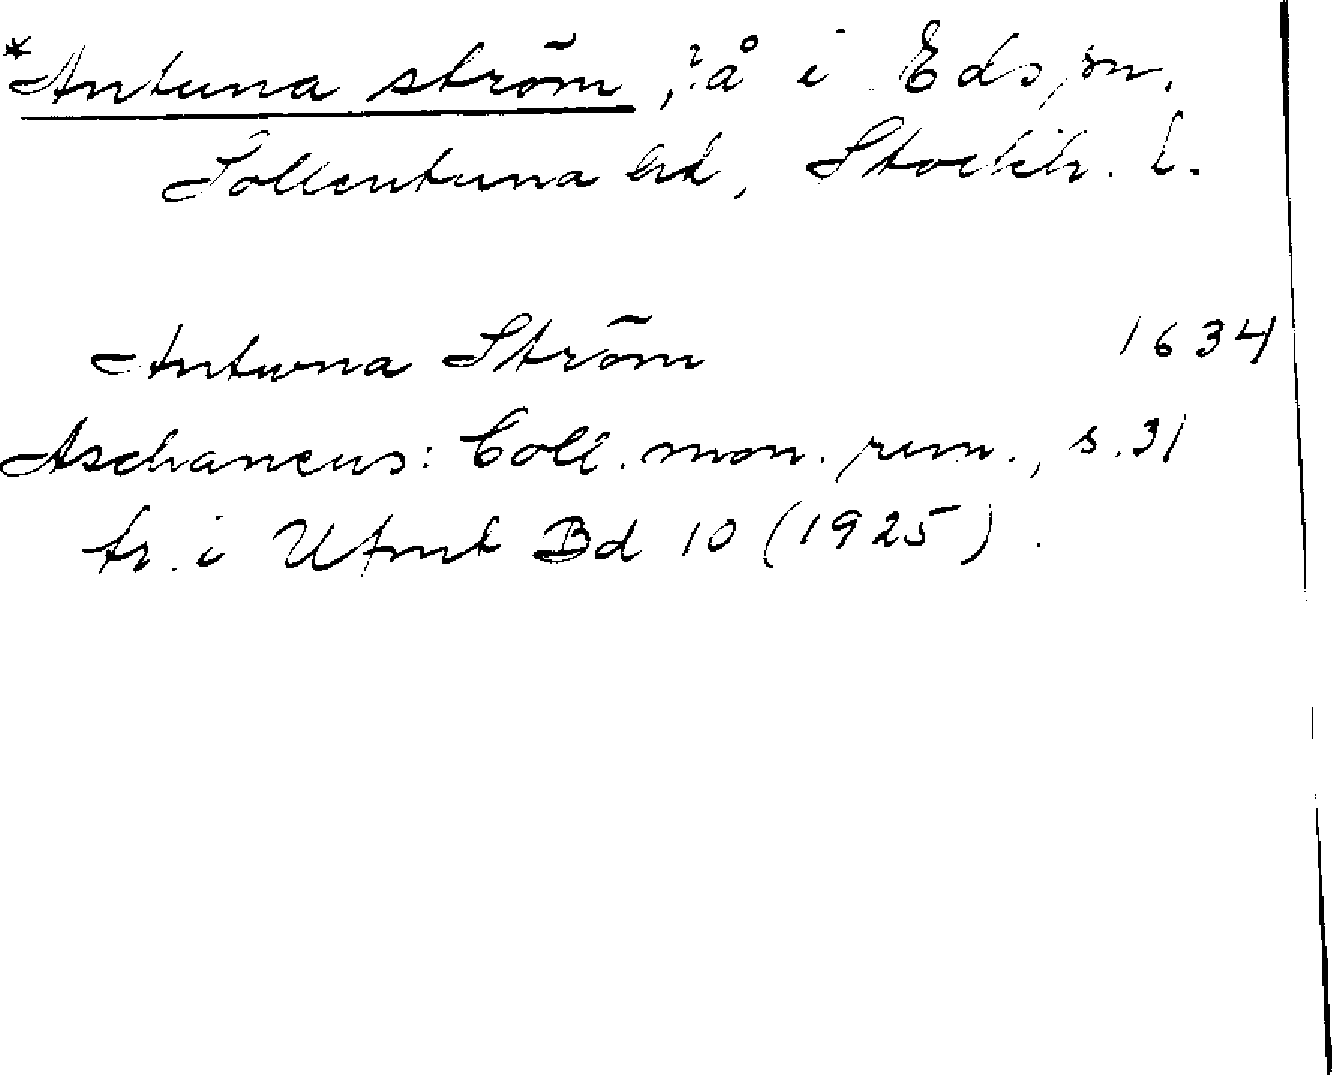 *Antuna ström, ?å i Eds sn,
Sollentuna hd, Stockh. l.
Antuna Ström 1634
Aschaneus: Coll. mon. run., s. 31
tr. i Ufmt Bd 10 (1925).